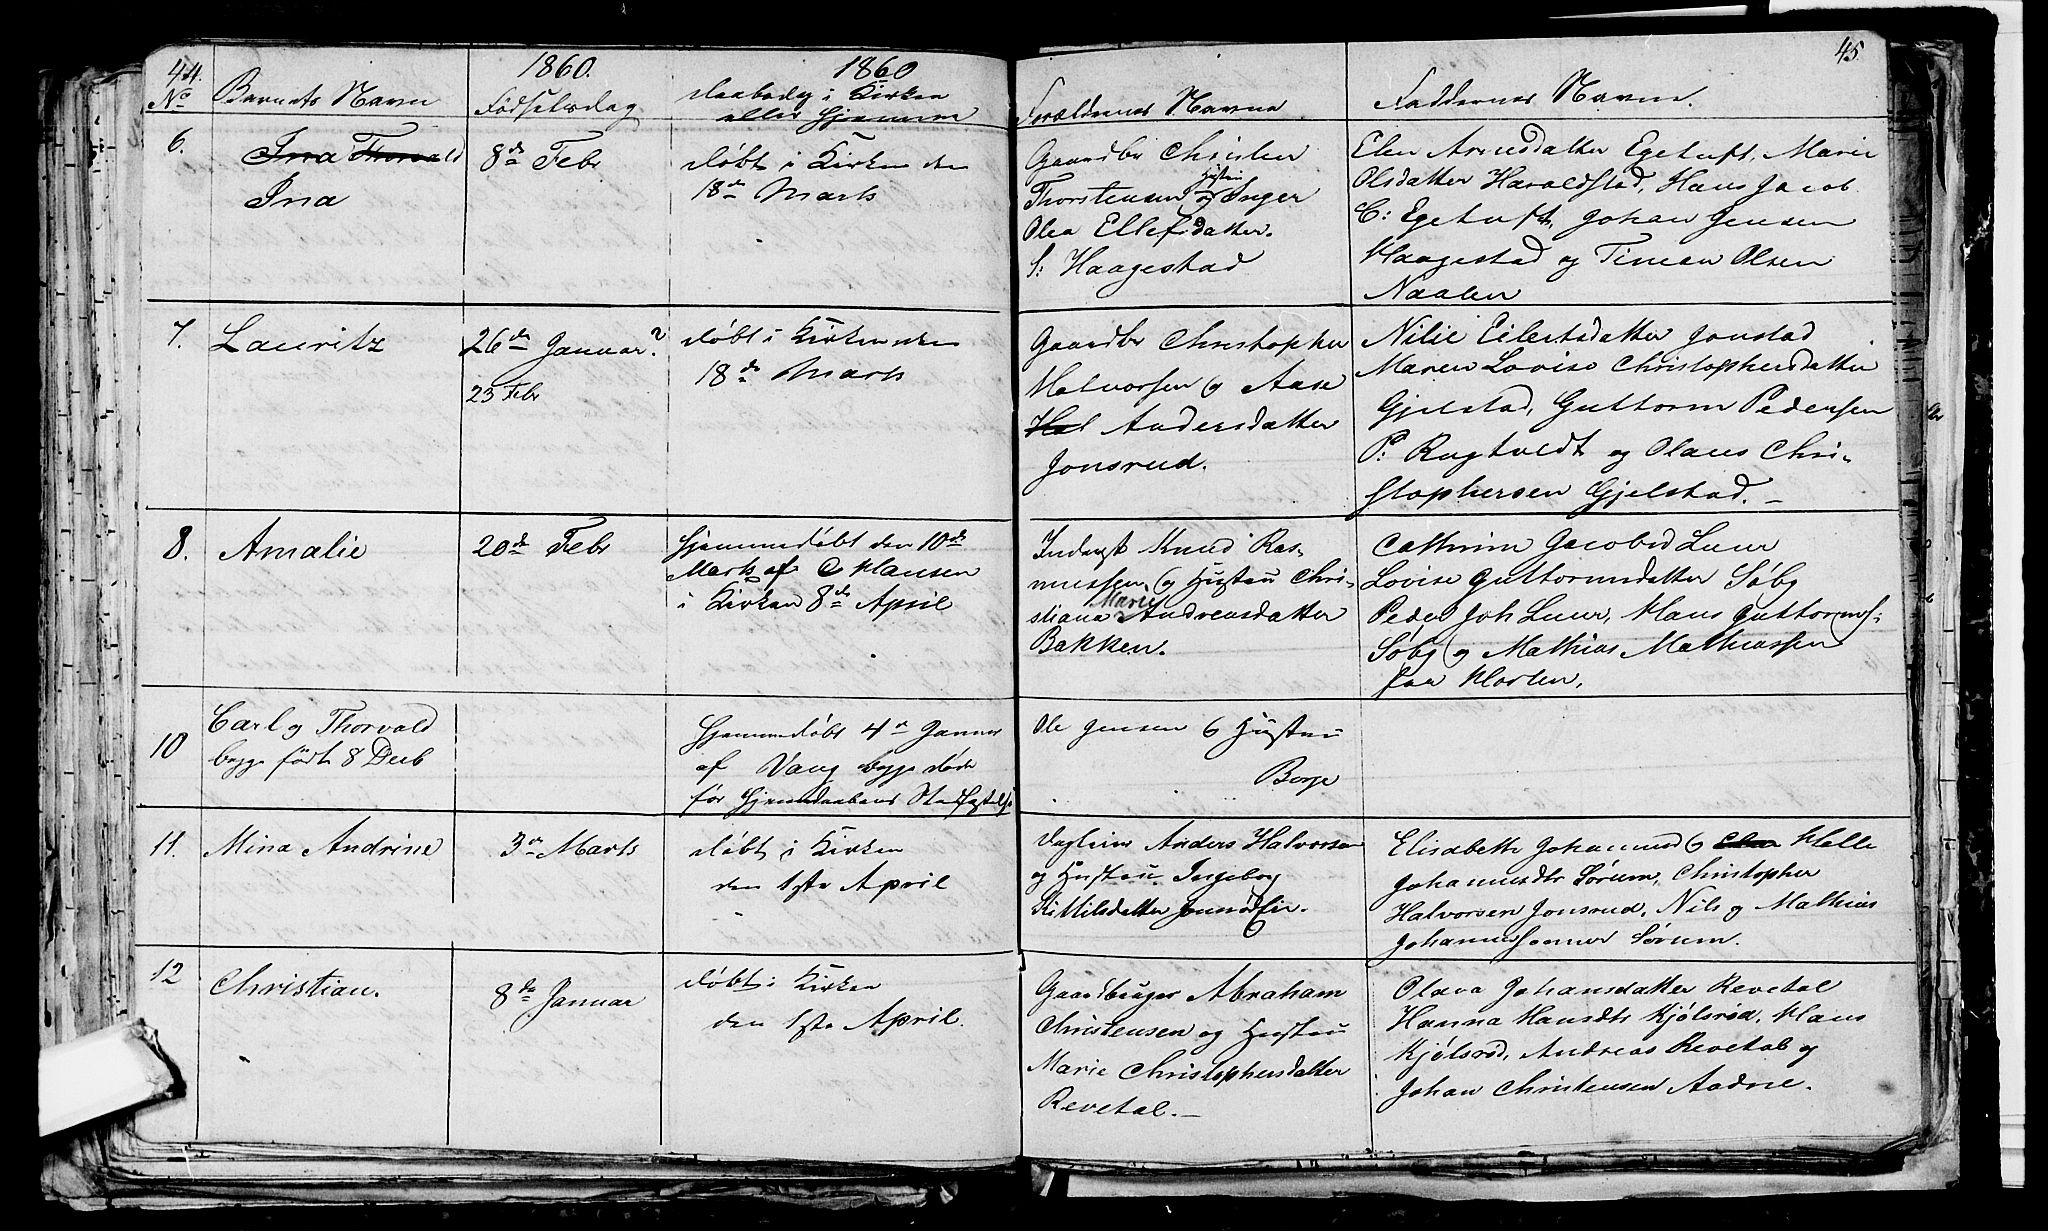 44. 1860. 1860
No Barnets Navn Fødselsdag Daabsdag i Kirken
eller Hjemme
6. Ina Thorvald 8de Febr Døbt i Kirken den
Ina 18de Marts
7. Lauritz 26de Januar? Døbt i Kirken den
23 Febr 18de Marts
8. Amalie 20de Febr Hjemmedøbt den 10de
Marts af C Hansen
i Kirken 8de April
Carl og Thorvald Hjemmedøbt 4de Januar
10 begge født 8 Decb af Vang begge døde
før Hjemmedaabens Stadfæstelse
11. Mina Andrine 3de Marts Døbt i Kirken
den 1ste April
12 Christian. 8de Januar Døbt i Kirken
den 1ste April.
45
Forældrenes Navne Faddernes Navne.
Gaardbr Christen
Hustru
Thorstensen og Inger
Olea Ellefsdatter.
S: Haagestad
Elen Arnesdatter Egetuft, Marie
Olsdatter Haraldstad, Hans Jacob
C: Egetuft, Johan Jensen
Haagestad og Timean Olsen
Naalen
Gaardbr Christopher
Halvorsen og Aase
Hal Andersdatter
Jonsrud.
Nilie Eilertsdatter Jonstad
Maren Lovise Christophersdatter
Gjelstad, Guttorm Pedersen
P: Rugtvedt og Olaus Chri-
stophersen Gjelstad. -
Inderst Knud Ras-
mussen og Hustru Chri-
Marie
stiana Andreasdatter
Bakken.
Cathrine Jacobsd Luur
Lovise Guttormsdatter Søby
Peder Joh Luur, Hans Guttorms:
Søby og Mathias Mathiassen
paa Horten,
Ole Jensen og Hustru
Borge
Anders Halvorsen
og Hustru Ingeborg
Kittilsdatter
Elisabeth Johannesd og Helle
Johannesdtr Sørum, Christopher
Halvorsen Jonsrud, Nils og Mathias
Johannessønner Sørum.
Gaardbruger Abraham
Christensen og Hustru
Marie Christophersdatter
Revetal. -
Olava Johansdatter Revetal
Hanna Hansdtr Kjølsrød, Hans
Kjølsrød, Andreas Revetal og
Johan Christensen Aadne.